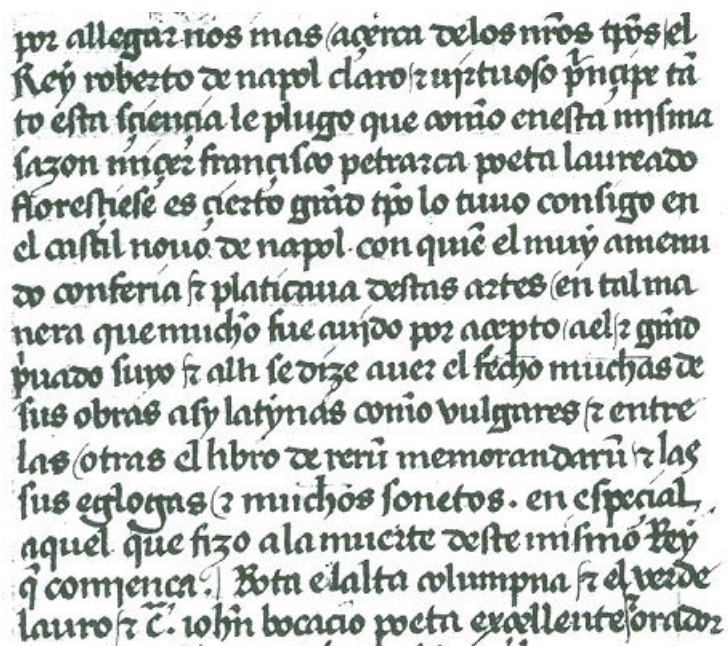 por allegar nos mas açerca delos nr̃os tp̃os el
Rey roberto de napol claro ⁊ uirtuoso pͥnçipe tã
to esta sçiençia le plugo que com̃o enesta misma
sazon miçer françisco petrarca poeta laureado
florestiesẽ es çierto grãd tp̃o lo tuuo consigo en
el castil nouo de napol con quiẽ el muy amenu
do conferia ⁊ platicaua destas artes en tal ma
nera que mucho fue auido por açepto ael ⁊ grãd
pͥuado suyo ⁊ alli se dize auer el fecho muchas de
sus obras asy latynas com̃o vulgares ⁊ entre
las otras el libro de rerũ memorandarũ ⁊ las
sus eglogas ⁊ muchos sonetos. en especial
aquel que fizo ala muerte deste mismo Rey
q̃ comiença. Rota elalta columpna ⁊ el verde
lauro ⁊ c̃. ioħn bocacio poeta exçellente orador